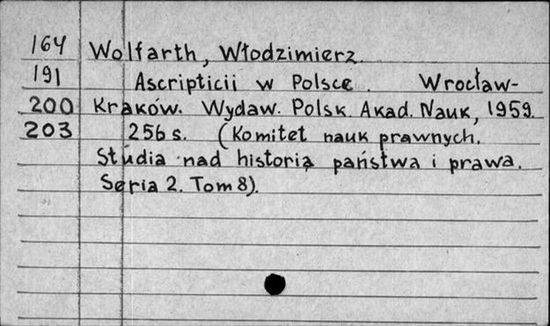 164 Wolfarth, Włodzimierz.
191 Ascripticii w Polsce. Wrocław-
200 Kraków. Wydaw. Polsk. Akad. Nauk, 1959.
203 256 s. (Komitet nauk prawnych.
Studia nad historią państwa i prawa.
Seria 2. Tom 8).